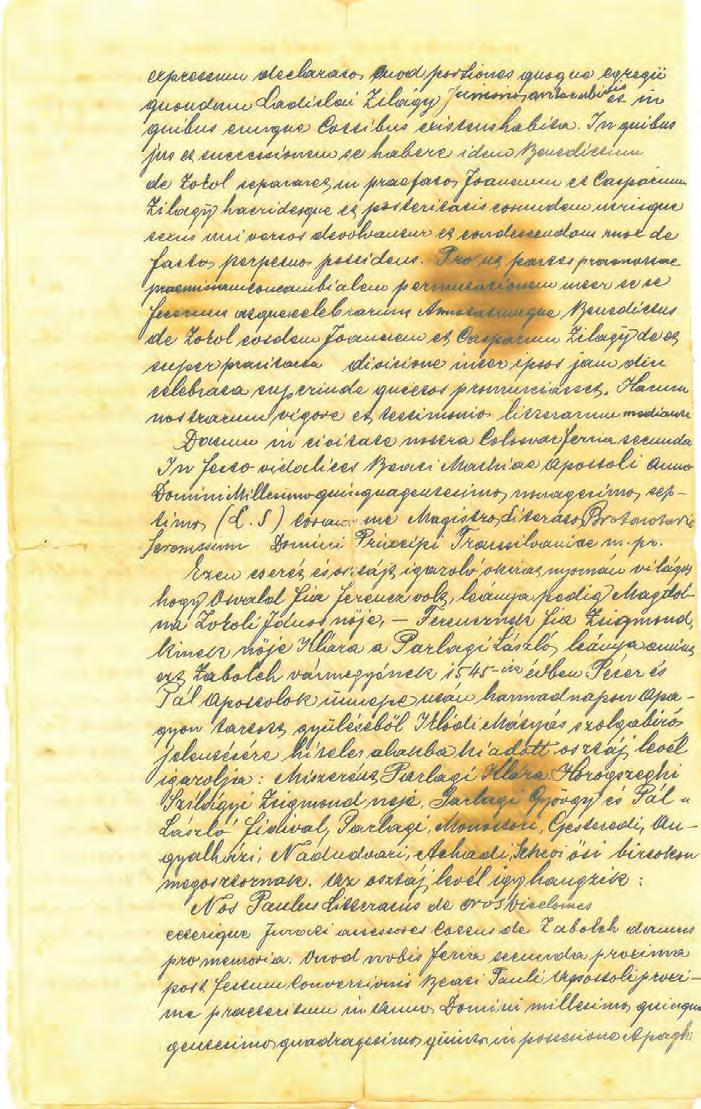 expressum declarato, quod portiones quoque egregii
quondam Ladislai Zilágy in
quibus cunque Cottibus existenshabita. In quibus
jus et successionem se habere idem Benedictum
de Zotol separaret in praefato, Joannem et Casparum
Zilágÿ haeridesque et posteritatis eorundem utrisque
sexus universos devolvantur et condescendant nunc de
facto, perpetuo possidens. Pro ut partes praenotatae
concambialem permutationem inter se se
fecerunt atque celebrarunt Annotatumque Benedictus
de Zotol eosdem Joannem et Casparum Zilagÿ de et
super divisione inter ipsos jam diu
celebrata exp prounde quietos pronunciasset. Harum
nostrarum vigore et testimonio litterarum mediante
Datum in civitate nostra Colosvar feria secunda
In festo vidalices Beati Mathiae Apostoli Anno
Domini Millesimo quinquagentesimo, nonagesimo, sep-
timo, (L. S) coram me Magistro, Literato,
Domini Principi Transilvaniae m. pr.
Ezen cserét és osztájt igazoló okirat nyomán világos
hogy Osvald fia Ferencz volt, leánya pedig Magdol-
na Zotoli János nője, – Ferencznek fia Zsigmond,
kinek nője Klára a Parlagi László, leánya amint
ezt Zabolch vármegyének 1545-ik évben Péter és
Pál Apostolok ünnepe után harmadnapon Apa-
gyon tartott gyüléséből Klódi Mátyás szolgabiró
jelentésére hiteles alakba kiadott osztáj levél
igazolja: miszerént Parlagi Klára Horogszeghi
Szilágyi Zsigmond nője, Parlagi György és Pál –
László fiaival, Parlagi, Monostori, Gesteredi, An-
gyalházi, Nádudvari, Achadi, ősi birtokon
megosztoznak. Az osztáj levél igy hangzik:
Nos Paulus Litteratus de Oros Vicecomes
ceterique Jurati assessores Cottus de Zabolch damus
pro memoria. Quod nobis feria secunda proxima
post festum Conversionis Beati Pauli Apostoli proxi-
me praeteritum in Anno Domini millesimo, quingue
gentesimo, quadragesimo, quinto, in possesione Apagh